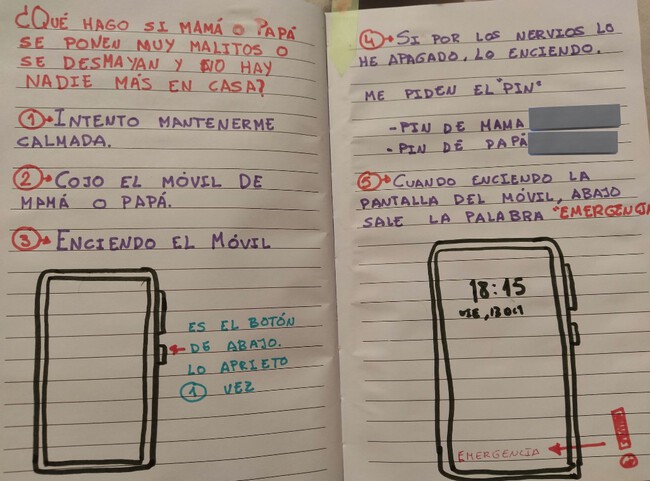 ¿QUÉ HAGO SI MAMÁ O PAPÁ
SE PONEN MUY MALITOS O
SE DESMAYAN Y NO HAY
NADIE MÁS EN CASA?
1 INTENTO MANTENERME
CALMADA.
2 COJO EL MÓVIL DE
MAMÁ O PAPÁ.
3 ENCIENDO EL MÓVIL
ES EL BOTÓN
DE ABAJO.
LO APRIETO
1 VEZ
4 SI POR LOS NERVIOS LO
HE APAGADO, LO ENCIENDO.
ME PIDEN EL "PIN"
- PIN DE MAMA
- PIN DE PAPÁ
5 CUANDO ENCIENDO LA
PANTALLA DEL MÓVIL, ABAJO
SALE LA PALABRA "EMERGENCIA
18:15
VIE, 13 OCT
EMERGENCIA